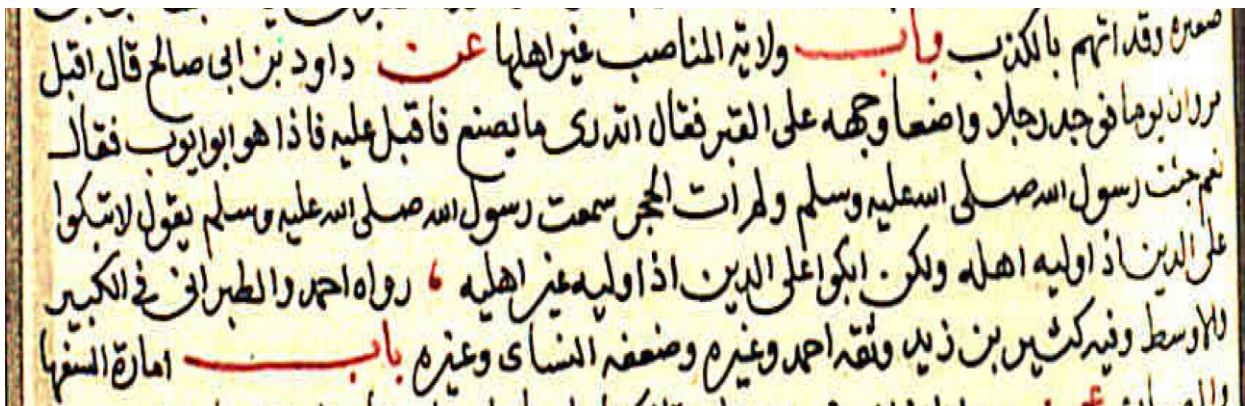 صغيره وقد اتهم بالكذب باب ولاية المناصب غير اهلها عن داود بن ابى صالح قال اقبل
مروان يوما فوجد رجلا واضعا وجهه على القبر فقال اتدرى ما يصنع فاقبل عليه فاذا هو ابو ايوب فقال
نعم جئت رسول الله صلى الله عليه وسلم ولم ات الحجر سمعت رسول الله صلى الله عليه وسلم يقول لا تبكوا
على الدين اذا وليه اهله ولكن ابكوا على الدين اذا وليه غير اهليه ، رواه احمد والطبرانى في الكبير
والاوسط وفيه كثير بن زيد وثقه احمد وغيره وضعفه النساى وغيره باب امارة السفها